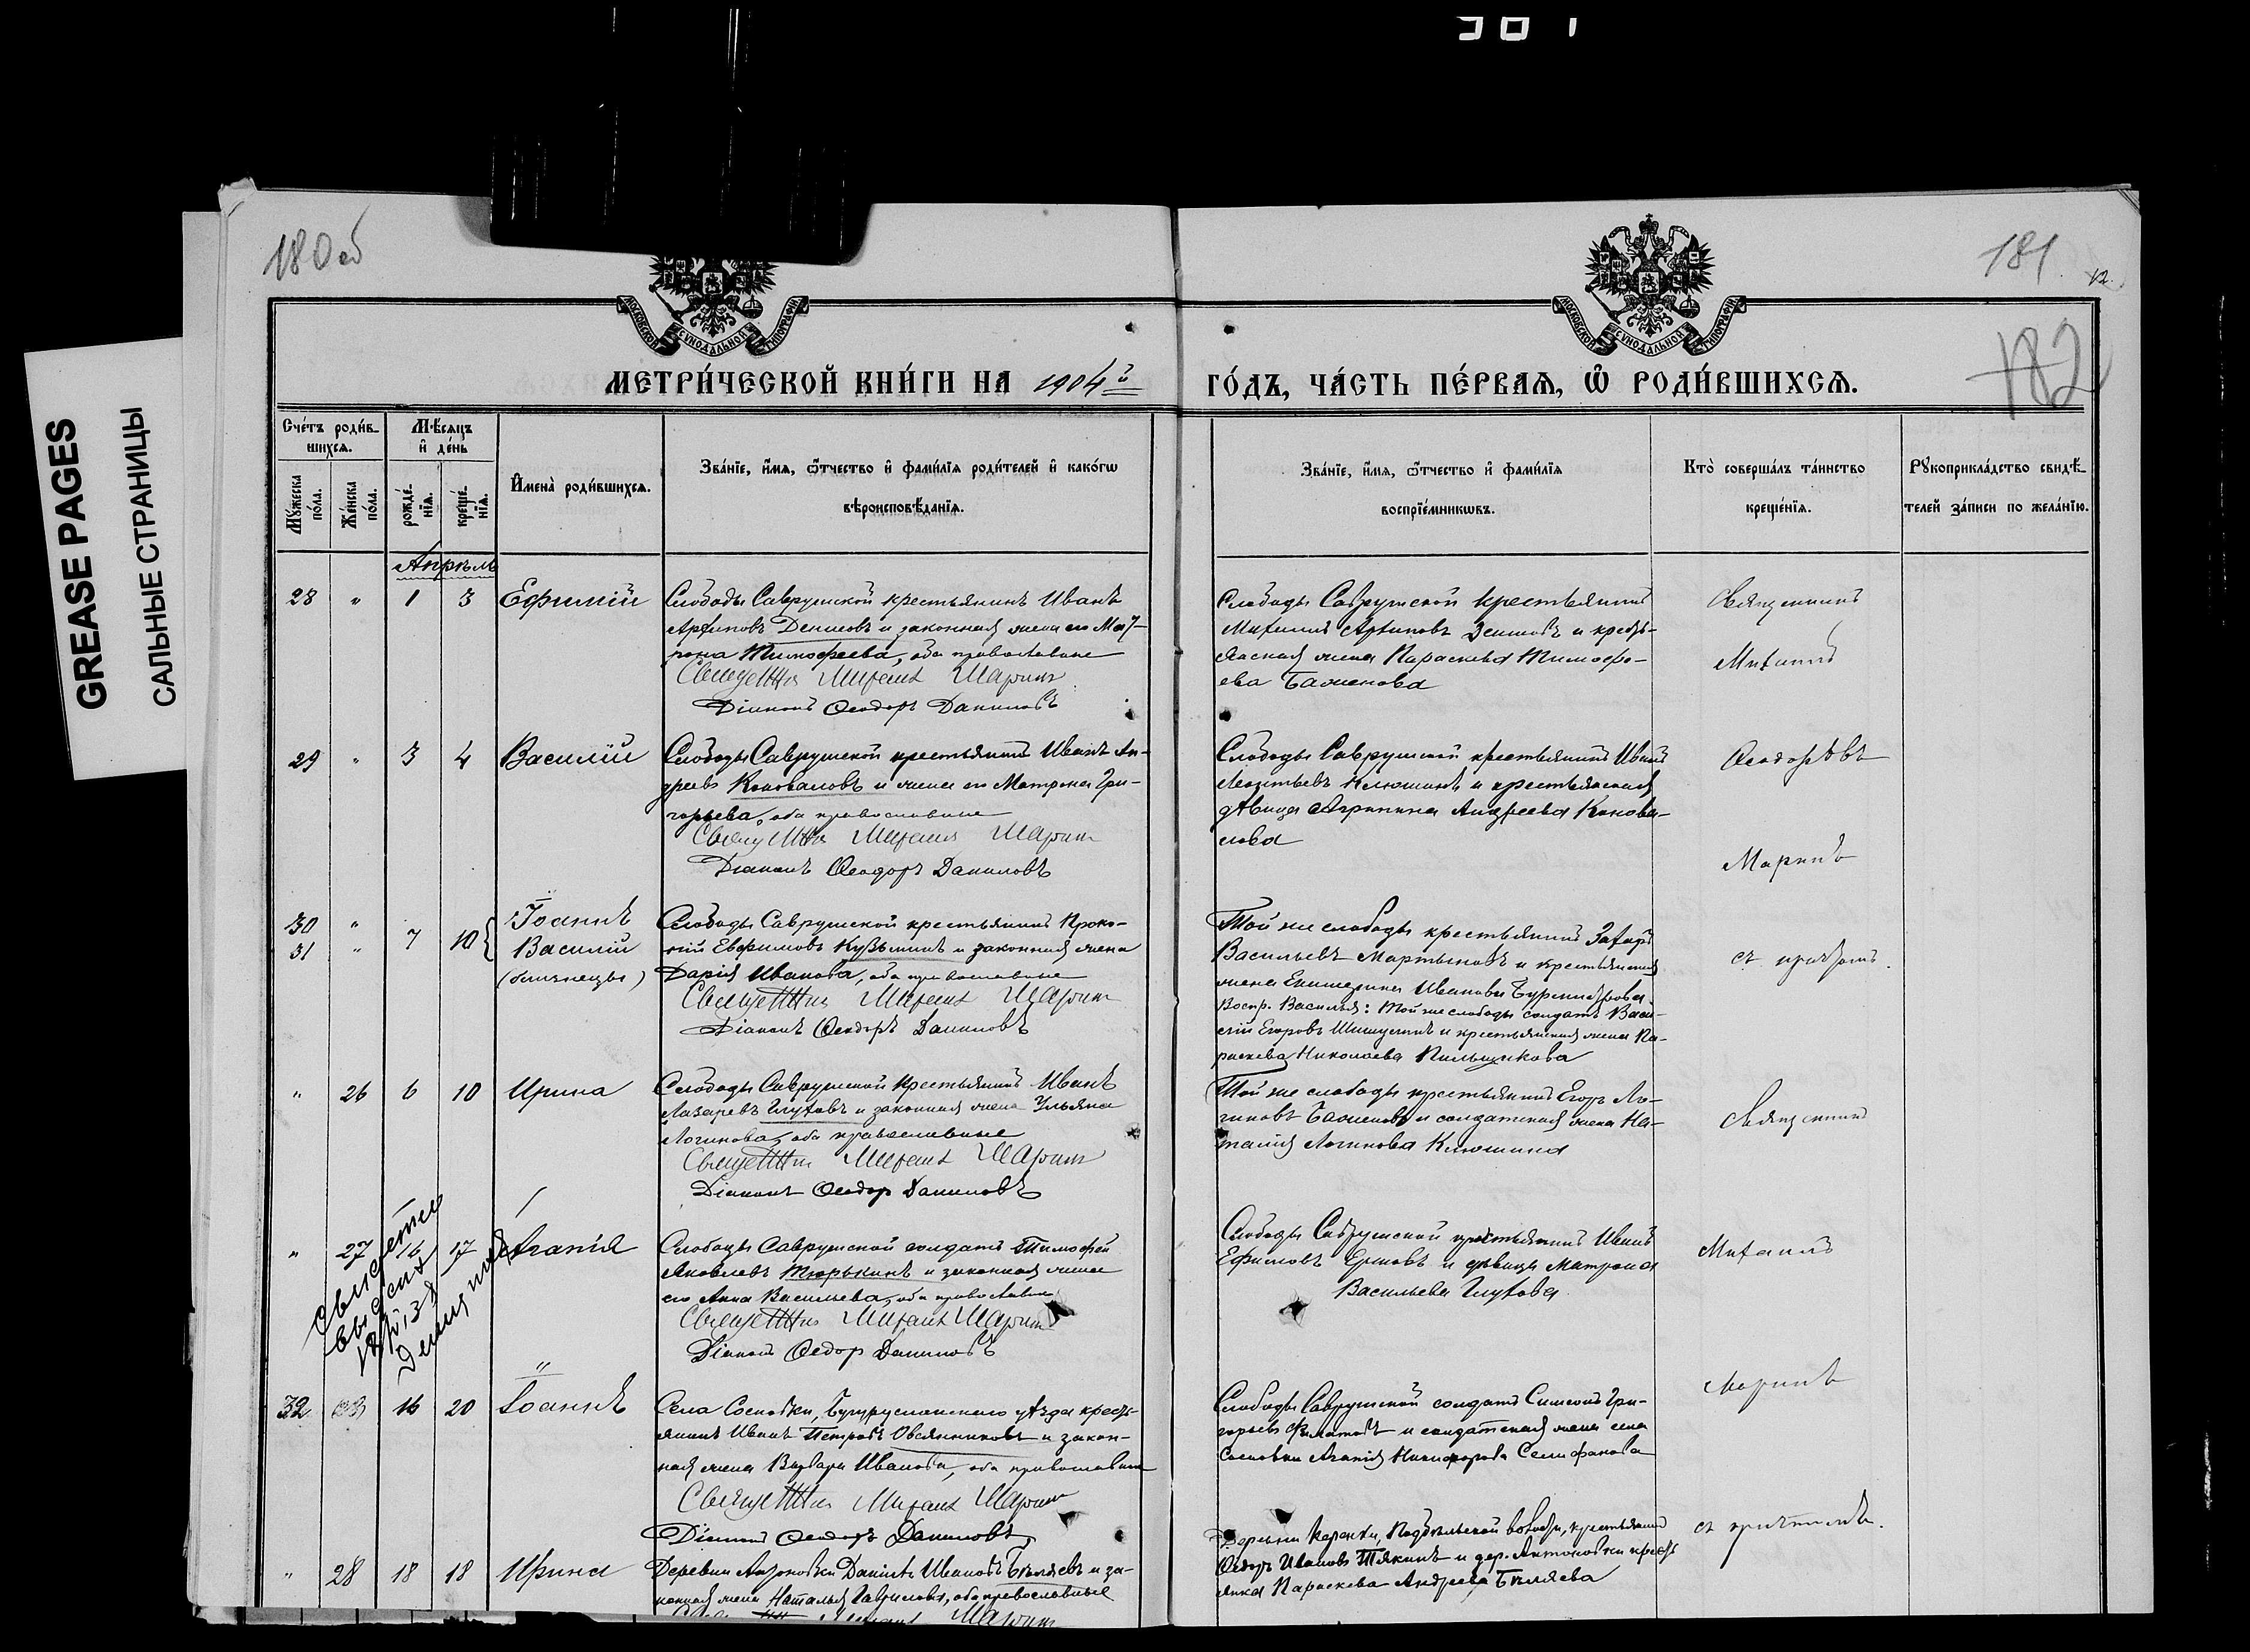 GREASE PAGES
САЛЬНЫЕ СТРАНИЦЫ
180 об
181
12.
182
МОСКОВСКОЙ СѴНОДАЛЬНОЙ ТИПОГРАФІИ
МОСКОВСКОЙ СѴНОДАЛЬНОЙ ТИПОГРАФІИ
МЕТРИ́ЧЕСКОЙ КНИ́ГИ НА 1904й ГО́ДЪ, ЧА́СТЬ ПЕ́РВАЯ, Ѽ РОДИ́ВШИХСЯ.
Сче́тъ роди́в-
шихся.
Мѣсяцъ
и де́нь
Му́жеска по́ла.
Же́нска по́ла.
рожде́-нїя.
креще́-нїя.
Имена̀ роди́вшихся.
Зва́нїе, и́мя, ѻ҆́тчество и҆ фами́лїя роди́телей и҆ како́гѡ
вѣроисповѣ́данїя.
Зва́нїе, и́мя, ѻ҆́тчество и҆ фами́лїя
воспрїе́мникѡвъ.
Кто̀ соверша́лъ та́инство
креще́нїя.
Рꙋкоприкла́дство свидѣ́-
телей за́писи по жела́нїю.
Апрѣль
28 " 1 3 Ефимій
Слободы Саврушской крестьянинъ Иванъ
Архиповъ Денисовъ и законная жена его Мат-
рона Тимофеева, оба православные
Священникъ Михаилъ Маринъ
Діаконъ Ѳеодоръ Даниловъ
Слободы Саврушской крестьянинъ
Михаилъ Архиповъ Денисовъ и кресть-
янская жена Параскева Тимофе-
ева Баженова
Священникъ
Михаилъ
29 " 3 4 Василій
Слободы Саврушской крестьянинъ Иванъ Ан-
дреевъ Коноваловъ и жена его Матрона Гри-
горьева, оба православные
Священникъ Михаилъ Маринъ
Діаконъ Ѳеодоръ Даниловъ
Слободы Саврушской крестьянинъ Иванъ
Леонтьевъ Клюшинъ и крестьянская
дѣвица Агрипина Андреева Конова-
лова
Маринъ
30 " 7 10 Іоаннъ
31 " Василій
(близнецы)
Слободы Саврушской крестьянинъ Проко-
пій Евфимовъ Кузьминъ и законная жена
Дарія Иванова, оба православные
Священникъ Михаилъ Маринъ
Діаконъ Ѳеодоръ Даниловъ
Той же слободы крестьянинъ Захаръ
Васильевъ Мартыновъ и крестьянская
жена Екатерина Иванова
Воспр. Василія: Той же слободы солдатъ Васи-
лій Егоровъ и крестьянская жена Па-
раскева Николаева Пильщикова
съ причтомъ.
" 26 6 10 Ирина
Слободы Саврушской крестьянинъ Иванъ
Лазаревъ Глуховъ и законная жена Ульяна
Логинова, оба православные
Священникъ Михаилъ Маринъ
Діаконъ Ѳеодоръ Даниловъ
Той же слободы крестьянинъ Егоръ Ло-
гиновъ Баженовъ и солдатская жена На-
талія Логинова Клюшина
Священникъ
" 27 16 17 Агапія
Слободы Саврушской солдатъ Тимофей
Яковлевъ Тюрькинъ и законная жена
его Анна Васильева, оба православные
Священникъ Михаилъ Маринъ
Діаконъ Ѳеодоръ Даниловъ
Слободы Саврушской крестьянинъ Иванъ
Ефимовъ Ермовъ и дѣвица Матрона
Васильева Глухова.
Михаилъ
32 16 20 Іоаннъ
Села Сосновки, Бугурусланскаго уѣзда кресть-
янинъ Иванъ Петровъ Овсянниковъ и закон-
ная жена Варвара Иванова, оба православные
Священникъ Михаилъ Маринъ
Діаконъ Ѳеодоръ Даниловъ
Слободы Саврушской солдатъ Симеонъ Гри-
горьевъ Филатовъ и солдатская жена села
Сосновки Агапія Никифорова Селифанова
Маринъ
" 28 18 18 Ирина
Деревни Антоновки Даніилъ Ивановъ Бѣляевъ и за-
конная жена Наталья Гаврилова, оба православные
Деревни волости, крестьянинъ
Ѳедоръ Ивановъ Тякинъ и дер. Антоновки кресть-
янка Параскева Андреева Бѣляева
съ причтомъ.